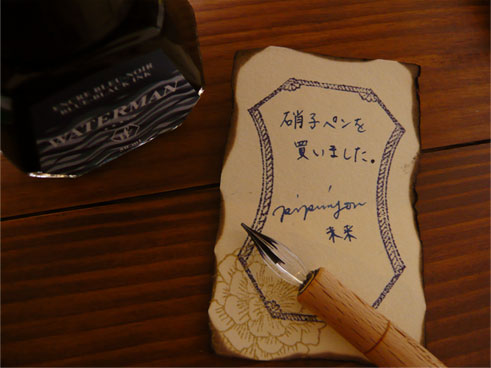 ENCRE BLEU-NOIR
BLUE-BLACK INK
WATERMAN
硝子ペンを
買いました。
未来